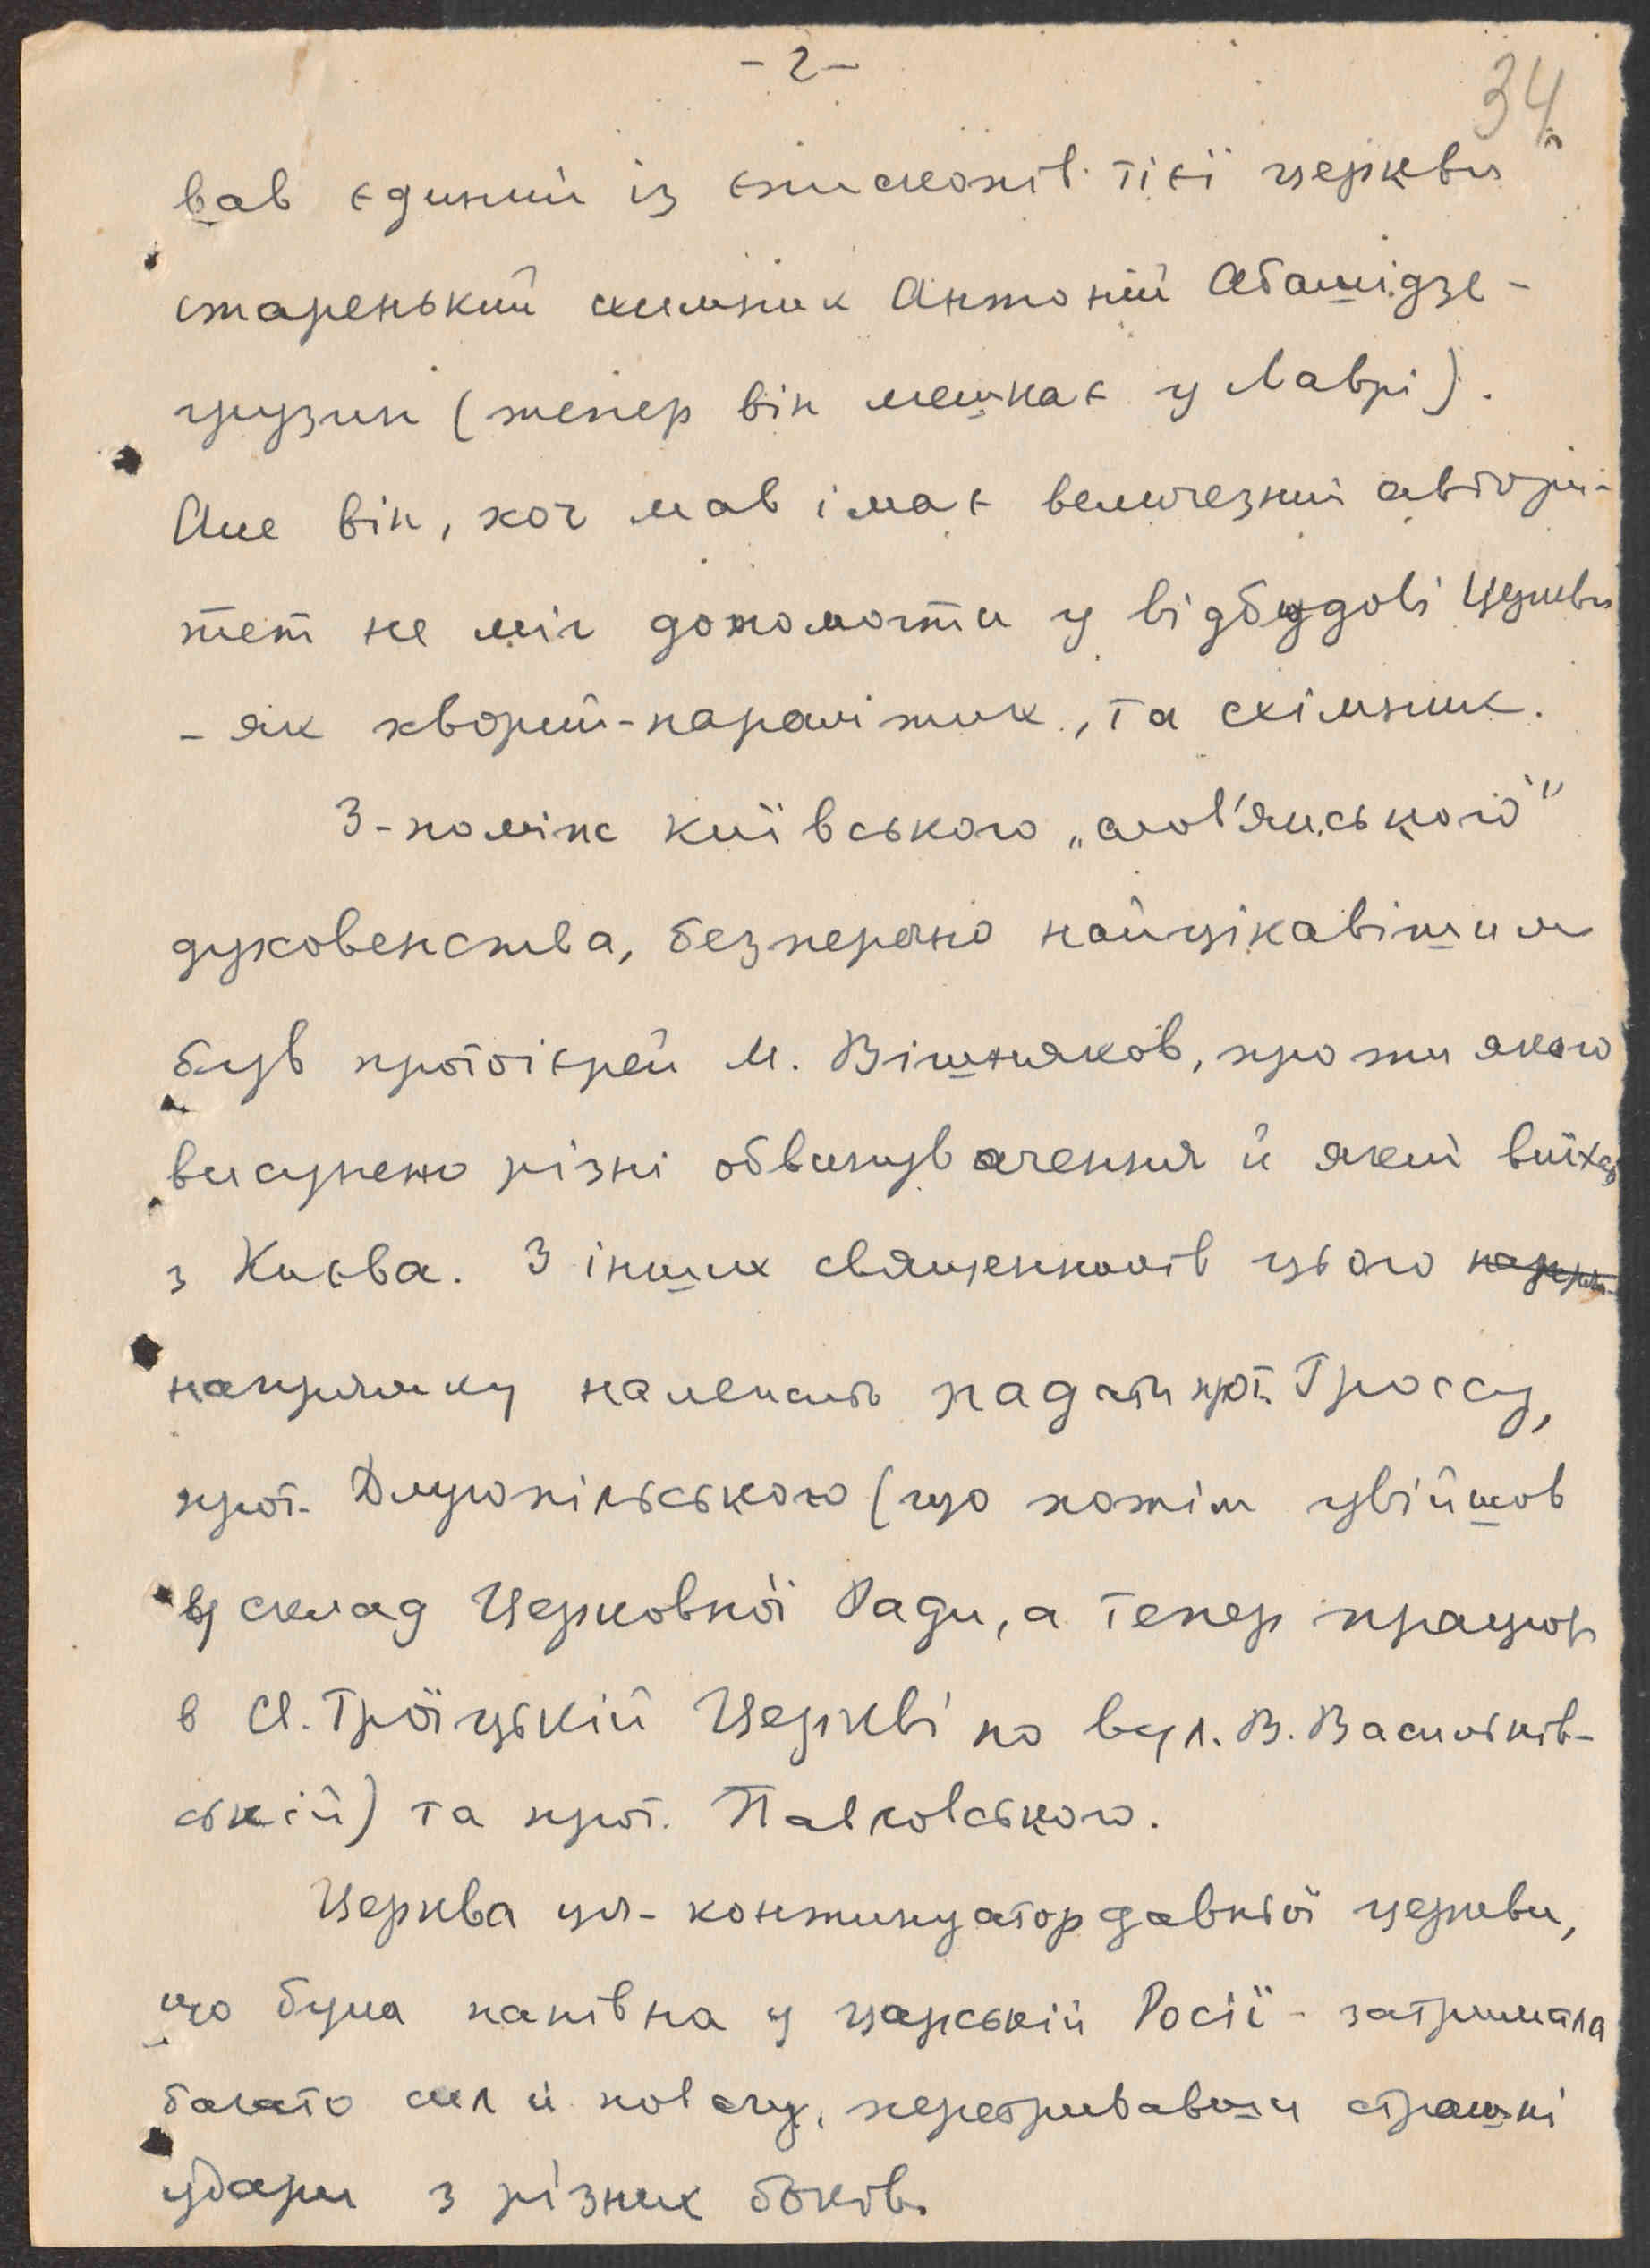 - 2 -
34
вав єдиний із єпископів тієї церкви
старенький схимник Антоній Абашідзе -
грузин (тепер він мешкає у Лаврі).
Але він, хоч мав і має величезний автори-
тет не міг допомогти у відбудові Церкви
- як хворий-паралітик, та схімник.
З-поміж київського „слов'янського"
духовенства, безперечно найцікавішим
був протоієрей М. Вішняков, проти якого
висунено різні обвинувачення й який виїхав
з Києва. З інших священників цього
напрямку належить згадати прот. Гроссу,
прот. Длугопільського (що потім увійшов
в склад Церковної Ради, а тепер працює
в Св. Троїцькій Церкві по вул. В. Васильків-
ській) та прот. Павловського.
Церква ця - континуатор давньої церкви,
що була панівна у царській Росії - затримала
багато сил й повагу, перетривавши страшні
удари з різних боків.